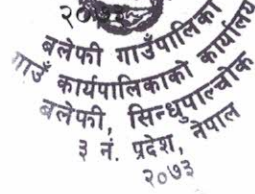 बलेफी गाउँपालिका
गाउँ कार्यपालिकाको कार्यालय
बलेफी, सिन्धुपाल्चोक
३ नं. प्रदेश, नेपाल
२०७३